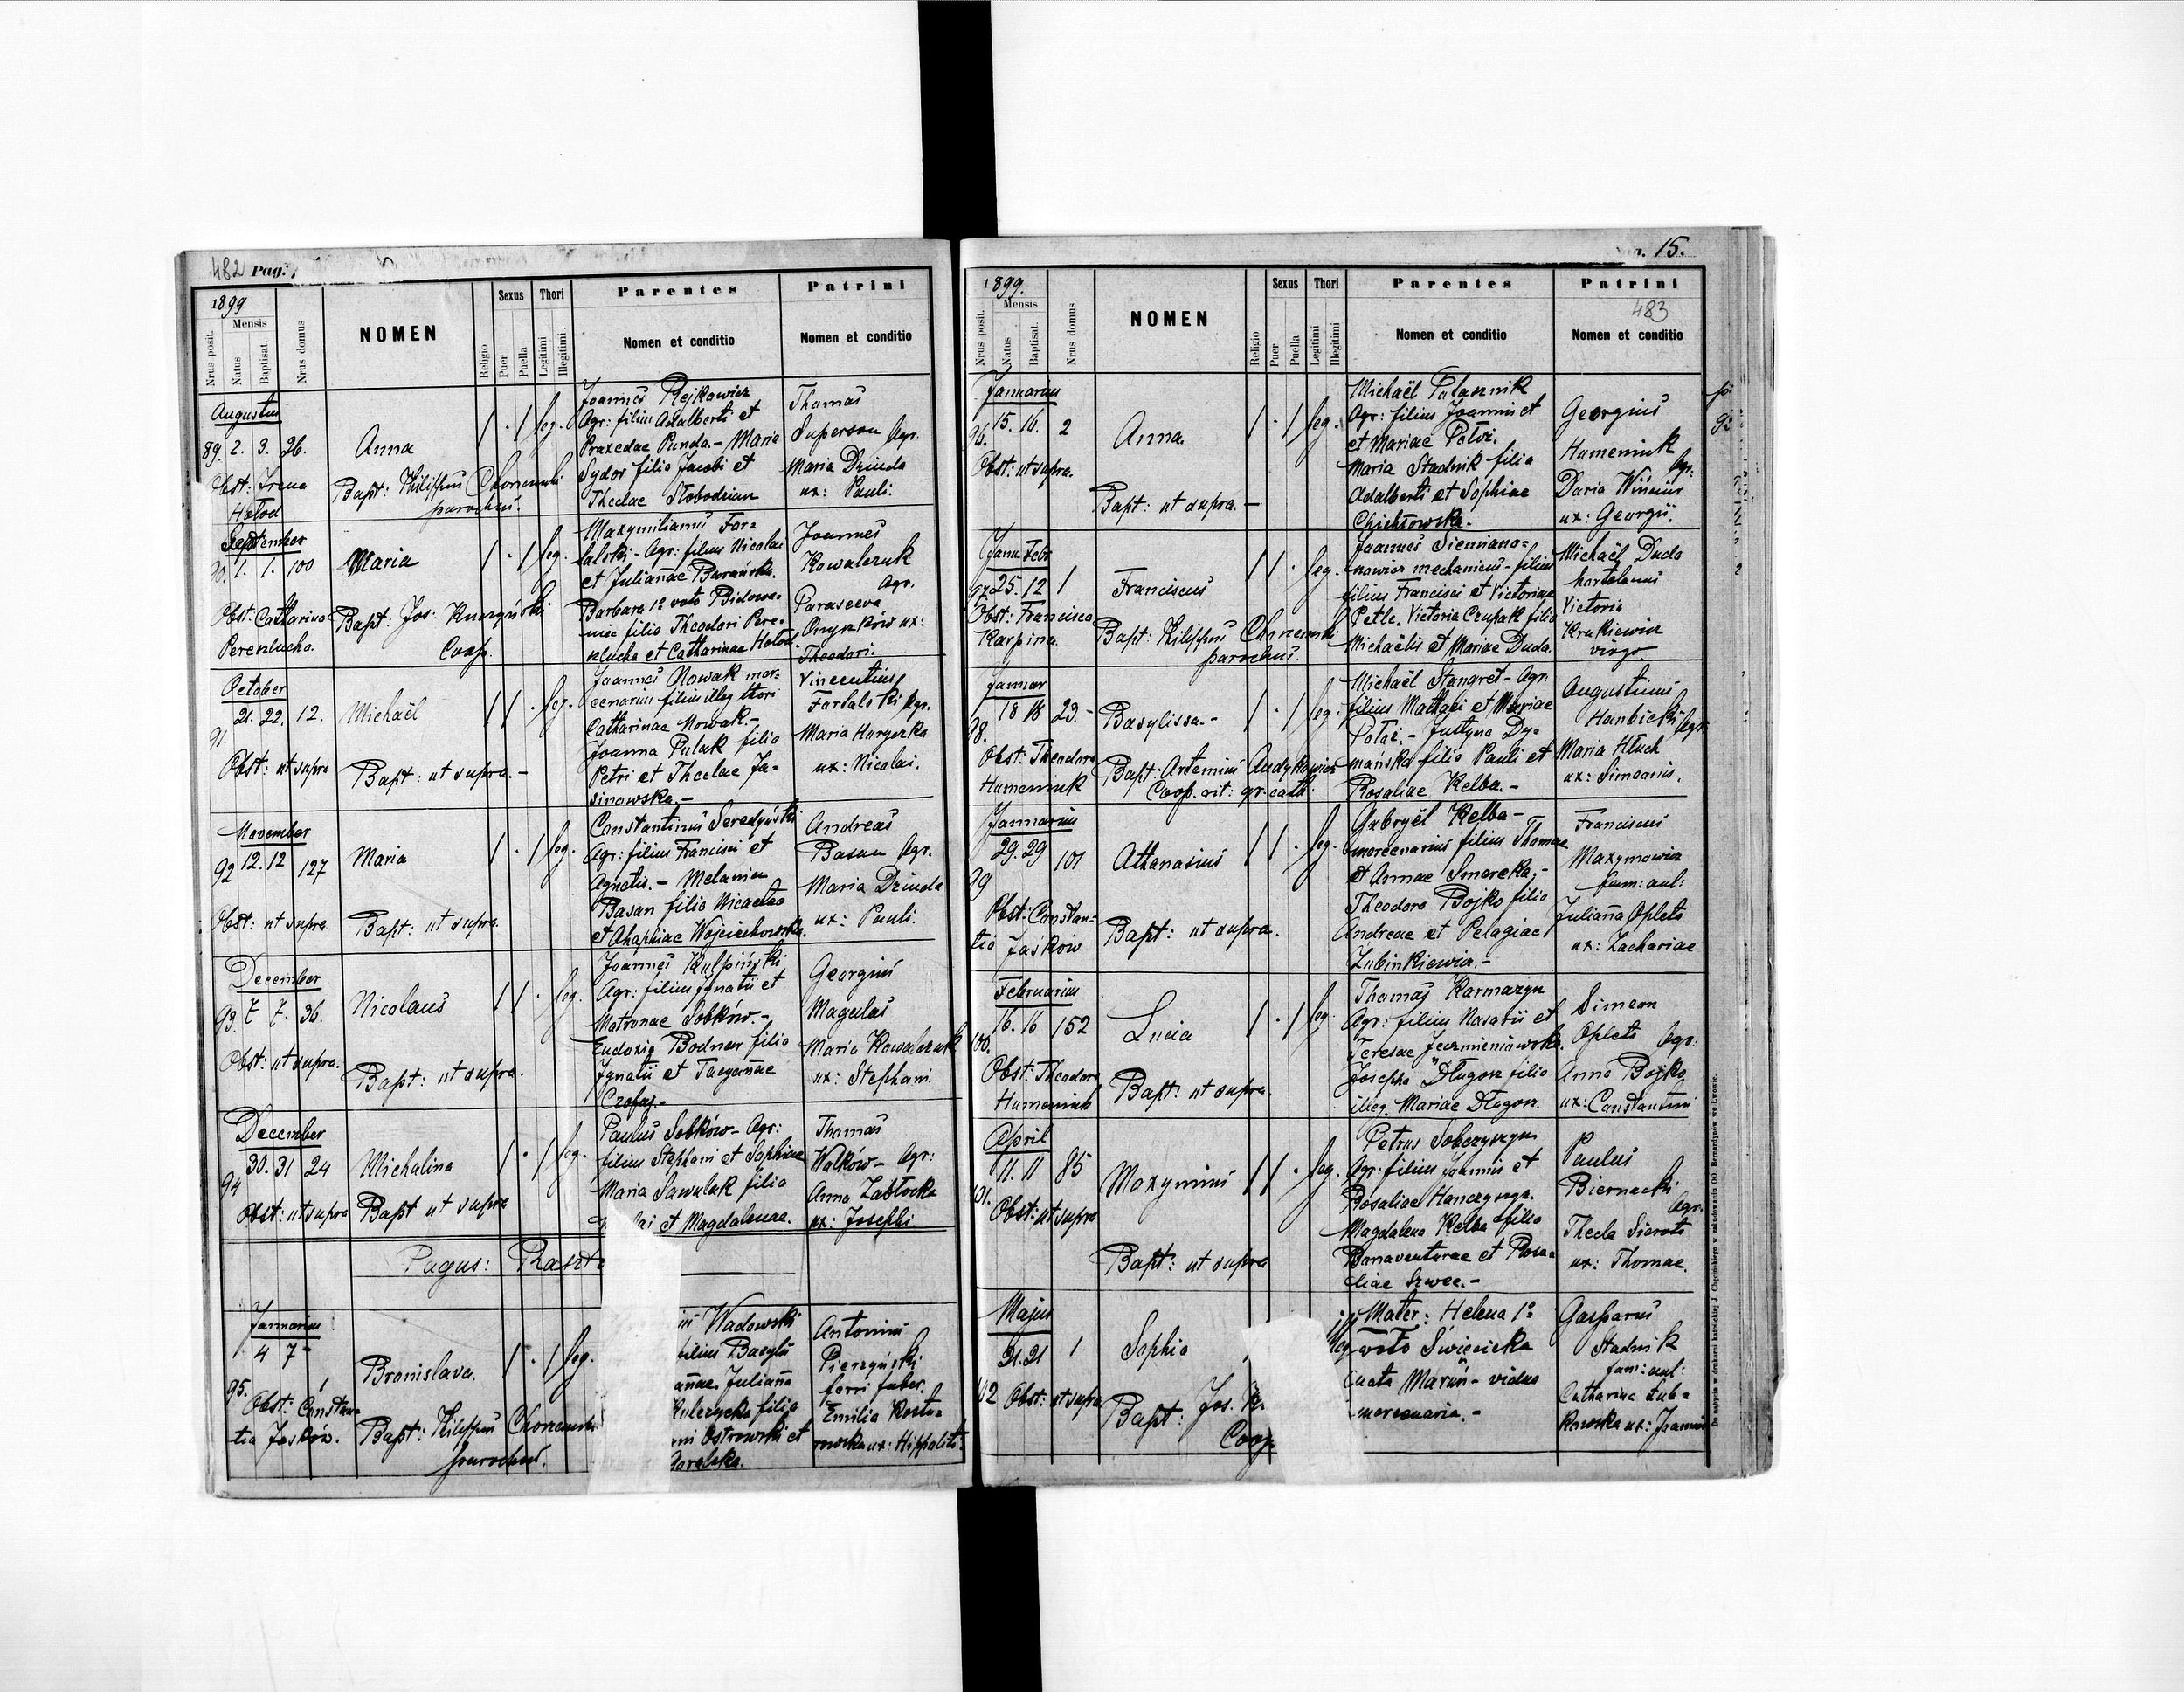 482 Pag.
1899
Nrus posit.
Mensis
Natus
Baptisat.
Nrus domus
NOMEN
Religio
Sexus
Puer
Puella
Thori
Legitimi
Illegitimi
Parentes
Nomen et conditio
Patrini
Nomen et conditio
Augustus
89. 2. 3. 26.
Anna
leg.
Obst: Irena
Hołod
Bapt: Philippus Chorzemski
parochus.
Joannes Rejkowicz
Agr: filius Adalberti et
Praxedae Punda. - Maria
Sydor filia Jacobi et
Theclae Słobodzian
Thomas
Superson Agr.
Maria Dziuda
ux: Pauli.
September
90. 1. 1. 100
Maria
leg.
Obst: Catharina
Perenlucha.
Bapt: Jos: Kuczyński
Coop.
Maxymilianus Far=
talski - Agr: filius Nicolai
et Julianae Barańska.
Barbara 1º voto
filia Theodori Pere=
nlucha et Catharinae Hołod.
Joannes
Kowalczuk
Agr.
Parasceva
Onyszków ux:
Theodori.
October
91. 21. 22. 12.
Michaël
leg.
Obst: ut supra
Bapt: ut supra. -
Joannes Nowak mer=
cenarius filius illeg thori
Catharinae Nowak. -
Joanna Pulak filia
Petri et Theclae Ja=
sinowska. -
Vincentius
Fartalski Agr.
Maria
ux: Nicolai.
November
92 12. 12 127
Maria
leg.
Obst: ut supra
Bapt: ut supra.
Constantinus Seredyński
Agr: filius Francisci et
Agnetis. - Melania
Basan filia
et Ahaphiae Wojciechowska.
Andreas
Basan Agr.
Maria Dziuda
ux: Pauli.
December
93. 7 7. 36.
Nicolaus
leg.
Obst: ut supra.
Bapt: ut supra.
Joannes Kulpiński
Agr: filius Ignatii et
Matronae Sobków. -
Eudoxia Bodnar filia
Ignatii et Tacyanae
Georgius
Magulas
Maria Kowalczuk
ux: Stephani
December
94 30. 31 24
Michalina
leg.
Obst: ut supra
Bapt ut supra
Paulus Sobków - Agr:
filius Stephani et Sophiae
Maria Sawulak filia
et Magdalenae.
Thomas
Walków - Agr:
Anna Zabłocka
ux: Josephi
Pagus:
Januarius
95. 4 7 -
Bronislava.
leg.
Obst: Constan=
tia Jasków.
Bapt: Philippus Chorzemski
parochus.
Wadowski
filius Basylii
Juliana
filia
Ostrowski et
Antonius
Pierzyński
ferri faber.
Emilia
ux: Hippoliti.
15.
1899.
Nrus posit.
Mensis
Natus
Baptisat.
Nrus domus
NOMEN
Religio
Sexus
Puer
Puella
Thori
Legitimi
Illegitimi
Parentes
Nomen et conditio
Patrini
483
Nomen et conditio
Januarius
96. 15. 16. 2
Anna.
leg.
Obst: ut supra.
Bapt: ut supra. -
Michaël Pałasznik
Agr: filius Joannis et
et Mariae
Maria Stadnik filia
Adalberti et Sophiae
Georgius
Humeniuk
Agr:
Daria
ux: Georgii.
Janu Febr
97 25. 12 1
Franciscus
leg.
Obst: Francisca
Karpina.
Bapt: Philippus Chorzemski
parochus.
Joannes Siemiano=
nowicz mechanicus - filius
filius Francisci et Victoriae
Petle. Victoria Czupak filia
Michaëlis et Mariae Duda.
Michaël Duda
hortolanus
Victoria
Krukiewicz
virgo
Januar
98. 18 18 29. -
Basylissa. -
leg.
Obst: Theodora
Humeniuk
Bapt: Artemius
Coop. rit: gr. cath.
Michaël Stangret - Agr.
filius Mathaei et Mariae
Potać. - Justyna Dy=
mańska filia Pauli et
Rosaliae Kelba. -
Augustinus
Hanbicki Agr.
Maria Hłuch
ux: Simeonis.
Januarius
99 29. 29 101
Athanasius
leg.
Obst: Constan=
tia Jasków
Bapt: ut supra.
Gabryël Kelba -
mercenarius filius Thomae
et Annae Smereka. -
Theodora Bojko filia
Andreae et Pelagiae
Zubinkiewicz. -
Franciscus
Maxymowicz
fam: aul:
Juliana Opleta
ux: Zachariae
Februarius
100. 16. 16 152
Lucia
leg.
Obst: Theodora
Humeniuk
Bapt: ut supra.
Thomas Karmazyn
Agr: filius Nasarii et
Teresae Jeczmieniowska.
Josepha Długosz filia
illeg. Mariae Długosz.
Simeon
Opleta Agr:
Anna Bojko
ux: Constantini
April
101. 11. 11 85
Maxymus
leg.
Obst: ut supra
Bapt: ut supra
Petrus Sobczyszyn
Agr: filius Joannis et
Rosaliae
Magdalena Kelba filia
Bonaventurae et Rosa=
liae Szwec. -
Paulus
Biernacki
Agr.
Thecla Siorota
ux: Thomae.
Majus
102 21. 21 1
Sophia
Obst: ut supra
Bapt: Jos. K
Coop.
Mater: Helena 1º
voto Święcicka
nata - vidua
mercenaria. -
Gasparus
Stadnik
fam: aul:
Catharina Lub=
kowska ux: Joannis
Do nabycia w drukarni katolickiej J. Chęcińskiego w zabudowaniu OO. Bernardynów we Lwowie.